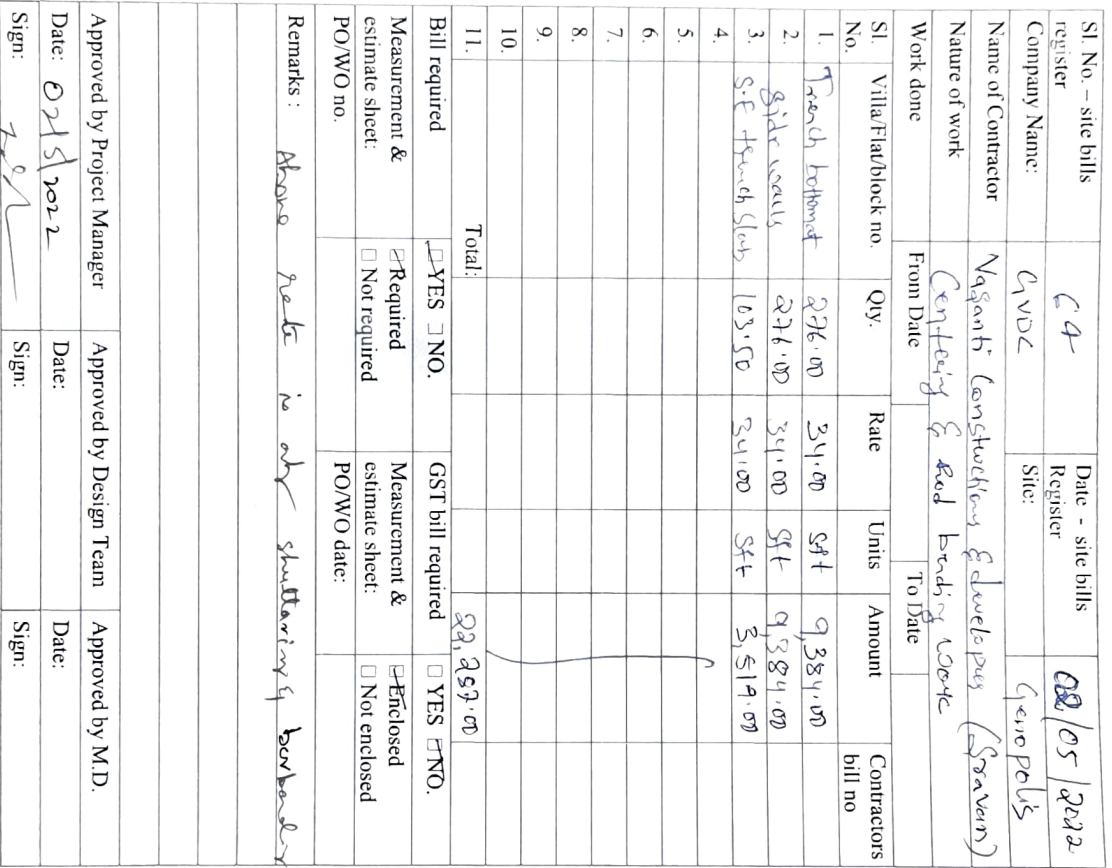 Sl. No – site bills register 64 Date - site bills Register 02/05/2022
Company Name: GVDC Site: Genopolis
Name of Contractor Naganti Constructions & developers (Sravan)
Nature of work Centering & Rod bending work
Work done From Date To Date
Sl. No. Villa/Flat/block no. Qty. Rate Units Amount Contractors bill no
1. Trench bottomat 276.00 34.00 Sft 9,384.00
2. Side walls 276.00 34.00 Sft 9,384.00
3. S.F trench slab 103.50 34.00 Sft 3,519.00
4.
5.
6.
7.
8.
9.
10.
11. Total: 22,287.00
Bill required ☐ YES ☐ NO. GST bill required ☐ YES ☐ NO.
Measurement & estimate sheet: ☐ Required ☐ Not required Measurement & estimate sheet: ☐ Enclosed ☐ Not enclosed
PO/WO no. PO/WO date:
Remarks : Above rate is shuttering
Approved by Project Manager Approved by Design Team Approved by M.D.
Date: 02/5/2022 Date: Date:
Sign: Sign: Sign: